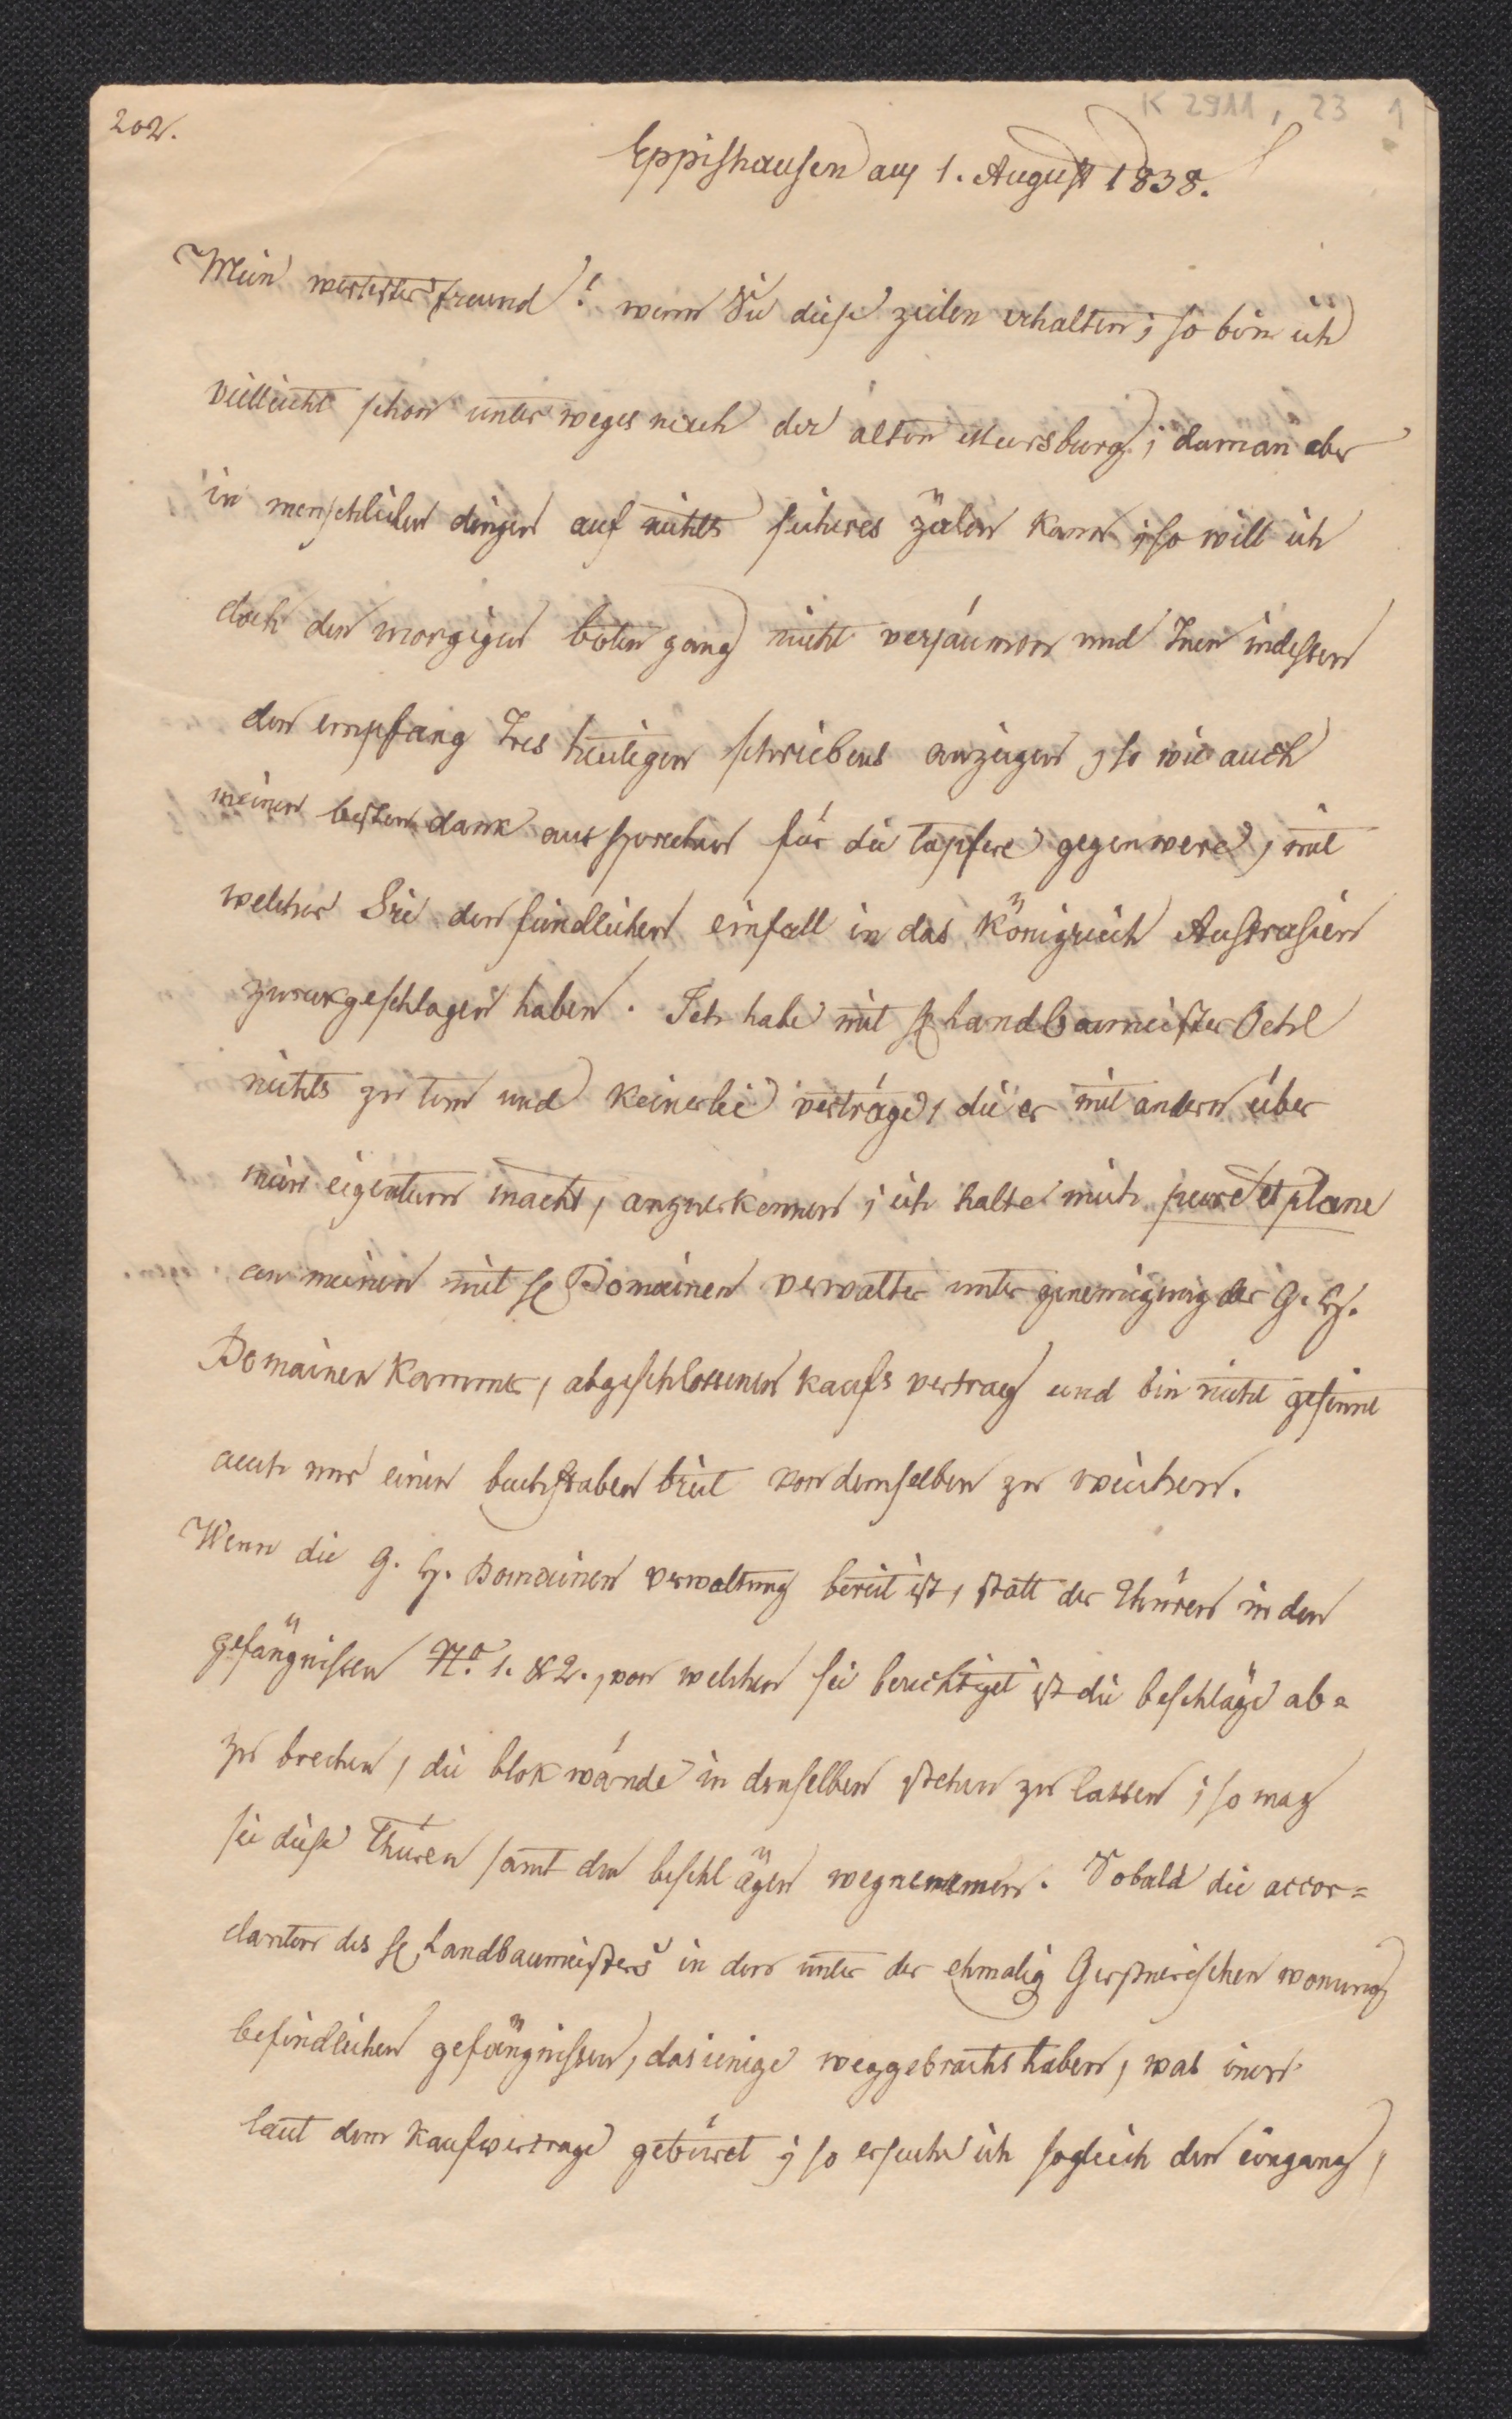 K 2911, 23 1
202.
Eppishausen am 1. August 1838.
Mein wertester freund! wenn Sie diese zeilen erhalten; so bin ich
vielleicht schon unterweges nach der alten Meersburg; da man aber
in menschlichen dingen auf nichts sicheres zälen kann; so will ich
doch den morgigen botengang nicht versäumen und Inen indessen
den empfang Ires heutigen schreibens anzeigen, so wie auch
meinen besten dank aussprechen für die tapfere gegenwere, mit
welcher Sie den feindlichen einfall in das Königreich Austrasien
zurukgeschlagen haben. Ich habe mit H Landbaumeister Oehl
nichts zu tun und keinerlei verträge, die er mit andern über
mein eigentum macht, anzuerkennen; ich halte mich pure et plane
an meinen mit H Domainen verwalter unter genemigung der G. H.
Domainen Kammer, abgeschlossenen kaufs vertrag und bin nicht gesinnt
auch nur einen buchstaben breit von demselben zu weichen.
Wenn die G. H. Domainen verwaltung bereit ist, statt der Thüren in den
gefängnissen No. 1. & 2., von welchen sie berechtiget ist die beschläge ab=
zu brechen, die blokwände in denselben stehen zu lassen; so mag
sie diese Thüren samt den beschlägen wegnemen. Sobald die accor=
danten des H Landbaumeisters in den unter der ehmalig Gerstnerischen wonung
befindlichen gefängnissen, dasienige weggebracht haben, was inen
laut dem Kaufvertrage gebüret; so ersuche ich sogleich den eingang,